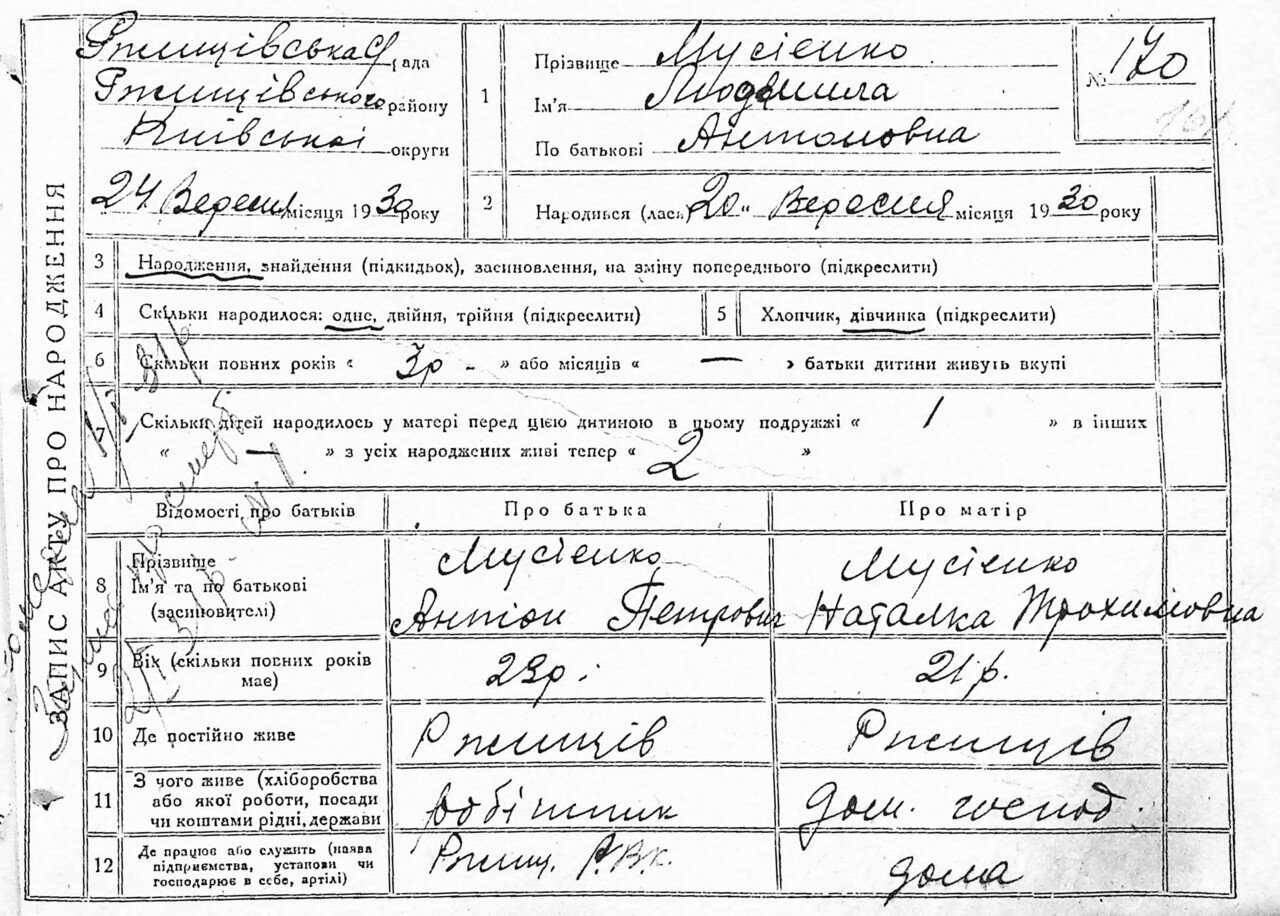 ЗАПИС АКТУ ПРО НАРОДЖЕННЯ
Ржищівська Рада
Ржищівського району
Київської округи
24 Вересня місяця 1930 року
1 Прізвище Мусієнко
Ім'я Людмила
По батькові Антоновна
№ 170
2 Народився (лась) 20 „ Вересня місяця 1930 року
3 Народження, знайдення (підкидьок), засиновлення, на зміну попереднього (підкреслити)
4 Скільки народилося: одне, двійня, трійня (підкреслити)
5 Хлопчик, дівчинка (підкреслити)
6 Скільки повних років « 3р - » або місяців « — » батьки дитини живуть вкупі
7 Скільки дітей народилось у матері перед цією дитиною в цьому подружжі « 1 » в інших
« — » з усіх народжених живі тепер « 2 »
Відомості про батьків Про батька Про матір
8 Прізвище
Ім'я та по батькові
(засиновителі)
Мусієнко
Антін Петрович
Мусієнко
Наталка Трохимовна
9 Вік (скільки повних років
має)
23р.
21р.
10 Де постійно живе Ржищів Ржищів
11 З чого живе (хліборобства
або якої роботи, посади
чи коштами рідні, держави
робітник
дом. господ.
12 Де працює або служить (назва
підприємства, установи чи
господарює в себе, артілі)
Ржищ. Р.В.К.
дома